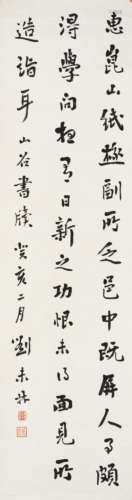 惠崑山紙極副所乏邑中既屏人事頗
得學問想有日新之功恨未得面見所
造詣耳 山谷書牘 癸亥二月 劉未林